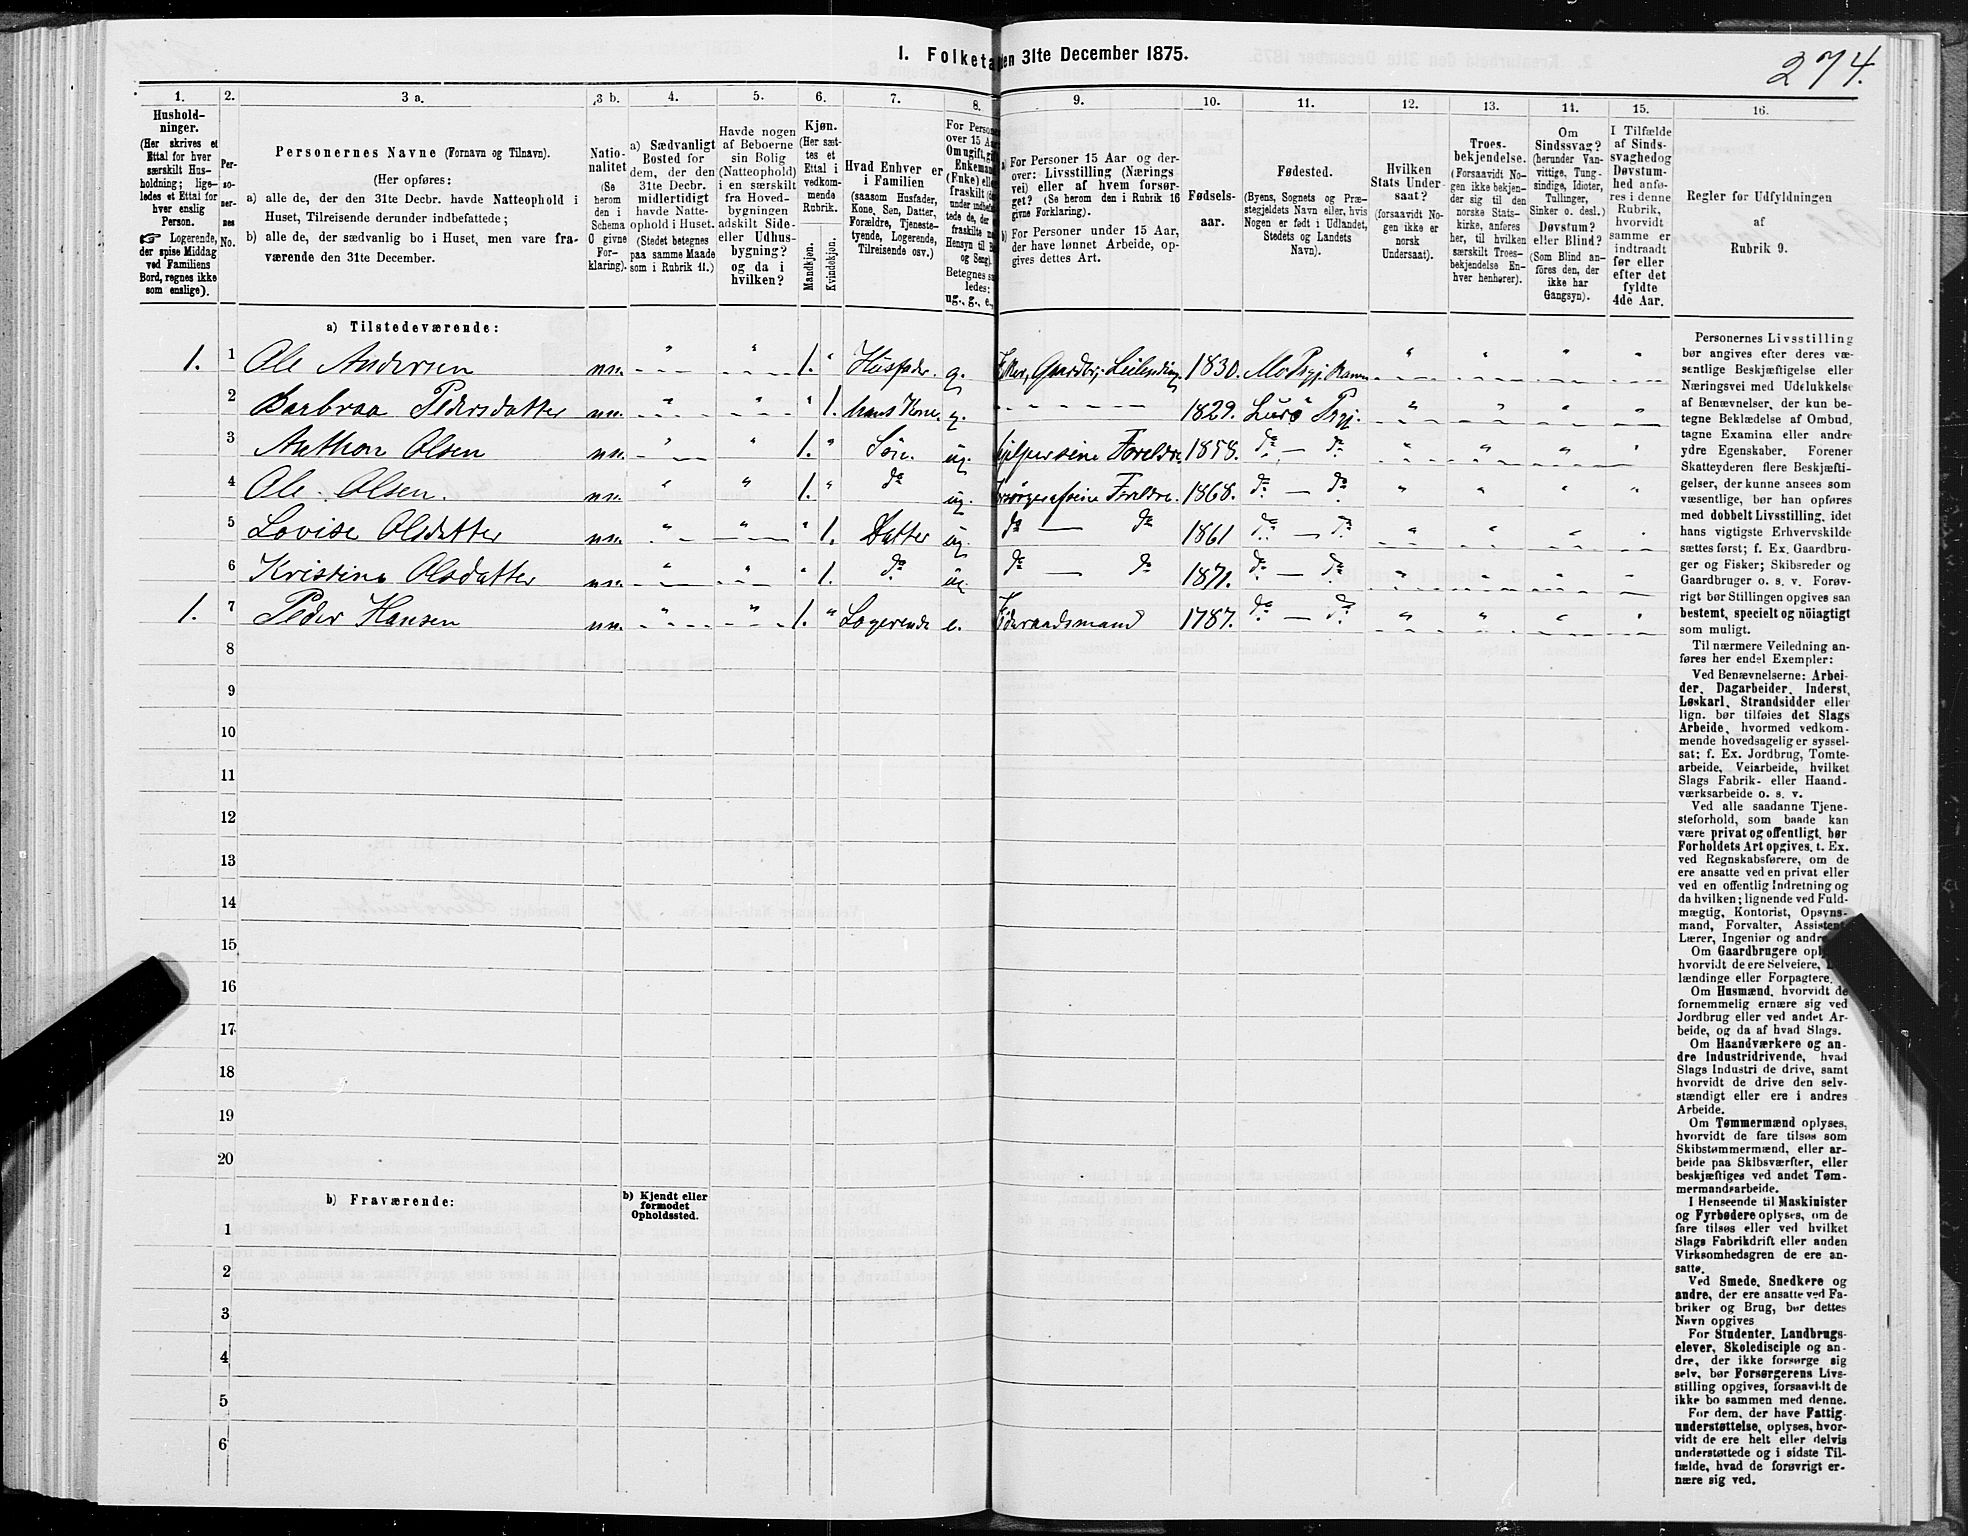 274.
I. Folketa en 31te December 1875.
1. 2. 3 a. 3 b. 4. 5. 6. 7. 8. 9. 10. 11. 12. 13. 14. 15. 16.
Hushold-
ninger.
(Her skrives et
Ettal for hver
særskilt Hus-
holdning; lige-
ledes et Ettal for
hver enslig
Person.
☞ Logerende,
der spise Middag
ved Familiens
Bord, regnes ikke
som enslige).
Per-
so-
ner-
nes
No.
Personernes Navne (Fornavn og Tilnavn).
(Her opføres:
a) alle de, der den 31te Decbr. havde Natteophold i
Huset, Tilreisende derunder indbefattede;
b) alle de, der sædvanlig bo i Huset, men vare fra-
værende den 31te December.
Natio-
nalitet
(Se
herom
den i
Schema
O givne
For-
klaring).
a) Sædvanligt
Bosted for
dem, der den
31te Decbr.
midlertidigt
havde Natte-
ophold i Huset.
(Stedet betegnes
paa samme Maade
som i Rubrik 11.)
Havde nogen
af Beboerne
sin Bolig
(Natteophold)
i en særskilt
fra Hoved-
bygningen
adskilt Side-
eller Udhus-
bygning?
og da i
hvilken?
Kjøn.
(Her sæt-
tes et
Ettal i
vedkom-
mende
Rubrik.
Mandkjøn.
Kvindekjøn.
Hvad Enhver er
i Familien
(saasom Husfader,
Kone, Søn, Datter,
Forældre, Tjeneste-
tyende, Logerende,
Tilreisende osv.)
For Persone
over 15 Aa
Om ugift, gi
Enkeman
(Enke) elle
fraskilt (de
under indbe
tede de, der
fraskilte m
Hensyn til B
og Seng).
Betegnes sa
ledes:
ug., g., e.,
a) For Personer 15 Aar og der-
over: Livsstilling (Nærings
vei) eller af hvem forsør-
get? (Se herom den i Rubrik 16
givne Forklaring).
b) For Personer under 15 Aar,
der have lønnet Arbeide, op-
gives dettes Art.
Fødsels-
aar.
Fødested.
(Byens, Sognets og Præ-
stegjeldets Navn eller, hvis
Nogen er født i Udlandet,
Stedets og Landets
Navn).
Hvilken
Stats Under-
saat?
(forsaavidt No-
gen ikke er
norsk
Undersaat).
Troes-
bekjendelse.
(Forsaavidt No-
gen ikke bekjen-
der sig til den
norske Stats-
kirke, anføres
her, til hvilken
særskilt Troes-
bekjendelse En-
hver henhører).
Om
Sindssvag?
(herunder Van-
vittige, Tung-
sindige, Idioter,
Tullinger,
Sinker o. desl.)
Døvstum?
eller Blind?
(Som Blind an-
føres den, der
ikke har
Gangsyn).
I Tilfælde
af Sinds-
svaghed og
Døvstum-
hed anfø-
res i denne
Rubrik,
hvorvidt
samme er
indtraadt
før eller
efter det
fyldte
4de Aar.
Regler for Udfyldningen
af
Rubrik 9.
a) Tilstedeværende:
1. 1 Ole Andersen nn. " " 1. " Husfader. g. Gaardbr., Leilending 1830. " " " "
2 Barbraa Pedersdatter nn. " " " 1. hans Kone g. 1829. Lurø Prgj. " " " "
3 Anthon Olsen nn. " " 1. " Søn. ug. hjelper sine Foreldre. 1858. do — do " " " "
4 Ole Olsen. nn. " " 1. " do ug. Foreldre. 1868. do — do " " " "
5 Lovise Olsdatter nn. " " " 1. Datter ug. do — do 1861 do — do " " " "
6 Kristine Olsdatter nn. " " " 1. do ug. do — do 1871. do — do " " " "
1. 7 Peder Hansen nn. " " 1. " Logerende e. Føderaadsmand 1787. do — do " " " "
8
9
10
11
12
13
14
15
16
17
18
19
20
b) Fraværende:
b) Kjendt eller
formodet
Opholdssted.
1
2
3
4
5
6
Personernes Livsstilling
bør angives efter deres væ-
sentlige Beskjæftigelse eller
Næringsvei med Udelukkelse
af Benævnelser, der kun be-
tegne Beklædelse af Ombud,
tagne Examina eller andre
ydre Egenskaber. Forener
Skatteyderen flere Beskjæfti-
gelser, der kunne ansees som
væsentlige, bør han opføres
med dobbelt Livsstilling, idet
hans vigtigste Erhvervskilde
sættes først; f. Ex. Gaardbru-
ger og Fisker; Skibsreder og
Gaardbruger o. s. v. Forøv-
rigt bør Stillingen opgives saa
bestemt, specielt og nöiagtigt
som muligt.
Til nærmere Veiledning an-
føres her endel Exempler:
Ved Benævnelserne: Arbei-
der, Dagarbeider, Inderst,
Løskarl, Strandsidder eller
lign. bør tilføies det Slags
Arbeide, hvormed vedkom-
mende hovedsagelig er syssel-
sat; f. Ex. Jordbrug, Tomte-
arbeide, Veiarbeide, hvilket
Slags Fabrik- eller Haand-
værksarbeide o. s. v.
Ved alle saadanne Tjene-
steforhold, som baade kan
være privat og offentligt, bør
Forholdets Art opgives, t. Ex.
ved Regnskabsførere, om de
ere ansatte ved en privat eller
ved en offentlig Indretning og
da hvilken; lignende ved Fuld-
mægtig, Kontorist, Opsyns-
mand, Forvalter, Assistent,
Lærer, Ingeniør og andre
Om Gaardbrugere opl
hvorvidt de ere Selveiere,
lændinge eller Forpagtere.
Om Husmænd, hvorvidt de
fornemmelig ernære sig ved
Jordbrug eller ved andet Ar-
beide, og da af hvad Slags.
Om Haandværkere og an-
dre Industridrivende, hvad
Slags Industri de drive, samt
hvorvidt de drive den selv-
stændigt eller ere i andres
Arbeide.
Om Tømmermænd oplyses,
hvorvidt de fare tilsøs som
Skibstømmermænd, eller ar-
beide paa Skibsværfter, eller
beskjæftiges ved andet Tøm-
mermandsarbeide.
I Henseende til Maskinister
og Fyrbødere oplyses, om de
fare tilsøs eller ved hvilket
Slags Fabrikdrift eller anden
Virksomhedsgren de ere an-
satte.
Ved Smede, Snedkere og
andre, der ere ansatte ved Fa-
briker og Brug, bør dettes
Navn opgives
For Studenter, Landbrugs-
elever, Skoledisciple og an-
dre, der ikke forsørge sig
selv, bør Forsørgerens Livs-
stilling opgives, forsaavidt de
ikke bo sammen med denne.
For dem, der have Fattig-
understøttelse, oplyses, hvor-
vidt de ere helt eller delvis
understøttede og i sidste Til-
fælde, hvad de forøvrigt er-
nære sig ved.